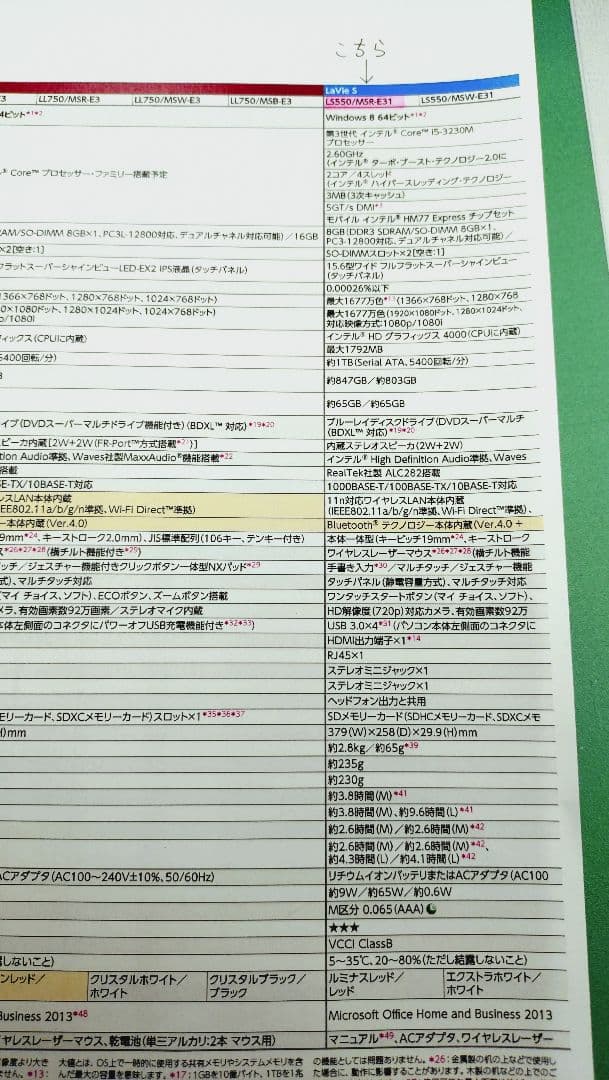 こちら
LaVie S
LL750/MSR-E3 LL750/MSW-E3 LL750/MSB-E3 LS550/MSR-E31 LS550/MSW-E31
Windows 8 64ビット*1*2
第3世代 インテル® Core™ i5-3230M
プロセッサー
® Core™ プロセッサー・ファミリー搭載予定
2.60GHz
(インテル® ターボ・ブースト・テクノロジー2.0に
2コア/4スレッド
(インテル® ハイパースレッディング・テクノロジー
3MB(3次キャッシュ)
5GT/s DMI
モバイル インテル® HM77 Express チップセット
AM/SO-DIMM 8GB×1、PC3L-12800対応、デュアルチャネル対応可能)/16GB
8GB(DDR3 SDRAM/SO-DIMM 8GB×1、
PC3-12800対応、デュアルチャネル対応可能)/
×2[空き:1]
SO-DIMMスロット×2[空き:1]
フラットスーパーシャインビューLED-EX2 IPS液晶(タッチパネル)
15.6型ワイド フルフラットスーパーシャインビュー
(タッチパネル)
0.00026%以下
1366×768ドット、1280×768ドット、1024×768ドット)
最大1677万色(1366×768ドット、1280×768
0×1080ドット、1280×1024ドット、1024×768ドット)
最大1677万色(1920×1080ドット、1280×1024ドット、
対応映像方式:1080p/1080i
p/1080i)
フィックス(CPUに内蔵)
インテル® HD グラフィックス 4000(CPUに内蔵)
最大1792MB
5400回転/分)
約1TB(Serial ATA、5400回転/分)
約847GB/約803GB
約65GB/約65GB
イブ(DVDスーパーマルチドライブ機能付き)(BDXL™ 対応)*19*20
ブルーレイディスクドライブ(DVDスーパーマルチ
(BDXL™ 対応)*19*20
ピーカ内蔵[2W+2W(FR-Port™方式搭載*21)]
内蔵ステレオスピーカ(2W+2W)
tion Audio準拠、Waves社製MaxxAudio®機能搭載*22
インテル® High Definition Audio準拠、Waves
搭載
RealTek社製 ALC282搭載
SE-TX/10BASE-T対応
1000BASE-T/100BASE-TX/10BASE-T対応
レスLAN本体内蔵
(IEEE802.11a/b/g/n準拠、Wi-Fi Direct™準拠)
11n対応ワイヤレスLAN本体内蔵
(IEEE802.11a/b/g/n準拠、Wi-Fi Direct™準拠)、
ー本体内蔵(Ver.4.0)
Bluetooth® テクノロジー本体内蔵(Ver.4.0 +
9mm*24、キーストローク2.0mm)、JIS標準配列(106キー、テンキー付き)
本体一体型(キーピッチ19mm*24、キーストローク
ス*26*27*28(横チルト機能付き*29)
ワイヤレスレーザーマウス*26*27*28(横チルト機能
ッチ/ジェスチャー機能付きクリックボタン一体型NXパッド*29
手書き入力*30/マルチタッチ/ジェスチャー機能
式)、マルチタッチ対応
タッチパネル(静電容量方式)、マルチタッチ対応
(マイ チョイス、ソフト)、ECOボタン、ズームボタン搭載
ワンタッチスタートボタン(マイ チョイス、ソフト)、
メラ、有効画素数92万画素/ステレオマイク内蔵
HD解像度(720p)対応カメラ、有効画素数92万
本体左側面のコネクタにパワーオフUSB充電機能付き*32*33)
USB 3.0×4*31(パソコン本体左側面のコネクタに
HDMI出力端子×1*14
RJ45×1
ステレオミニジャック×1
ステレオミニジャック×1
ヘッドフォン出力と共用
モリーカード、SDXCメモリーカード)スロット×1*35*36*37
SDメモリーカード(SDHCメモリーカード、SDXCメモ
(H)mm
379(W)×258(D)×29.9(H)mm
約2.8kg/約65g*39
約235g
約230g
約3.8時間(M)*41
約3.8時間(M)、約9.6時間(L)*41
約2.6時間(M)/約2.6時間(M)*42
約2.6時間(M)/約2.6時間(M)*42、
約4.3時間(L)/約4.1時間(L)*42
ACアダプタ(AC100〜240V±10%、50/60Hz)
リチウムイオンバッテリまたはACアダプタ(AC100
約9W/約65W/約0.6W
M区分 0.065(AAA)
★★★
VCCI ClassB
露しないこと)
5〜35℃、20〜80%(ただし結露しないこと)
ンレッド/ クリスタルホワイト/ホワイト クリスタルブラック/ブラック ルミナスレッド/レッド エクストラホワイト/ホワイト
Business 2013*48
Microsoft Office Home and Business 2013
イヤレスレーザーマウス、乾電池(単三アルカリ:2本 マウス用)
マニュアル*49、ACアダプタ、ワイヤレスレーザー
大値とは、OS上で一時的に使用する共有メモリやシステムメモリを含
んだ最大の容量を意味します。*17:1GBを10億バイト、1TBを1兆
の機能としては問題ありません。*26:金属製の机の上などで使用し
た場合に、動作に影響することがあります。